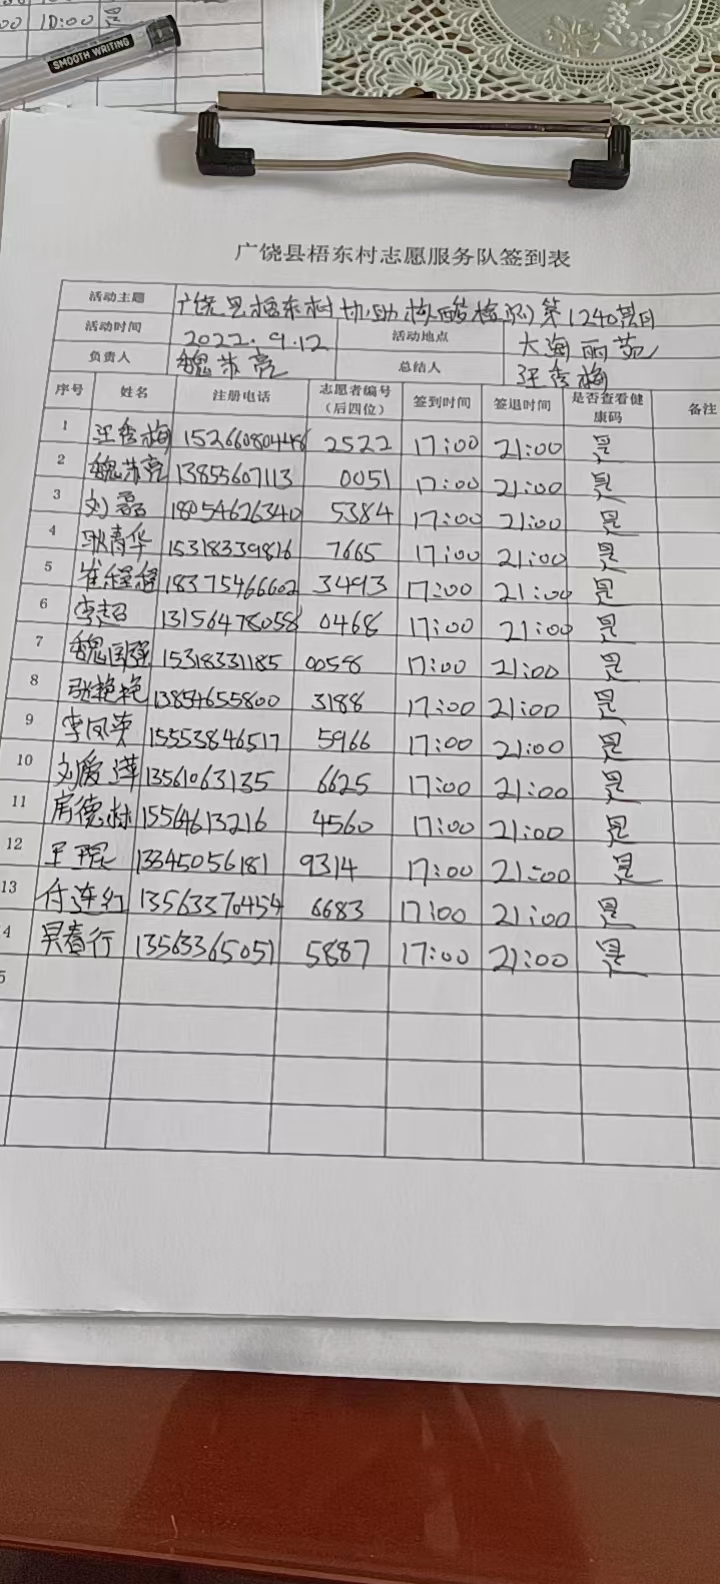 00 10:00 是
SMOOTH WRITING
广饶县梧东村志愿服务队签到表
活动主题 广饶县梧东村协助核酸检测第1240期
活动时间 2022.9.12 活动地点 大海丽苑
负责人 魏苏亮 总结人 汪秀梅
序号 姓名 注册电话 志愿者编号（后四位） 签到时间 签退时间 是否查看健康码 备注
1 汪秀梅 152660804448 2522 17:00 21:00 是
2 魏苏亮 13855607113 0051 17:00 21:00 是
3 刘磊 18054626340 5384 17:00 21:00 是
4 耿青华 15318339816 7665 17:00 21:00 是
5 崔 18375466602 3493 17:00 21:00 是
6 李超 13156478058 0468 17:00 21:00 是
7 魏国强 15318331185 0058 17:00 21:00 是
8 张艳艳 13854655800 3188 17:00 21:00 是
9 李凤英 15553846517 5966 17:00 21:00 是
10 刘爱莲 13561063135 6625 17:00 21:00 是
11 房德林 15564613216 4560 17:00 21:00 是
12 王琨 13345056181 9314 17:00 21:00 是
13 付连红 13563370454 6683 17:00 21:00 是
4 吴春行 13563365051 5887 17:00 21:00 是
5